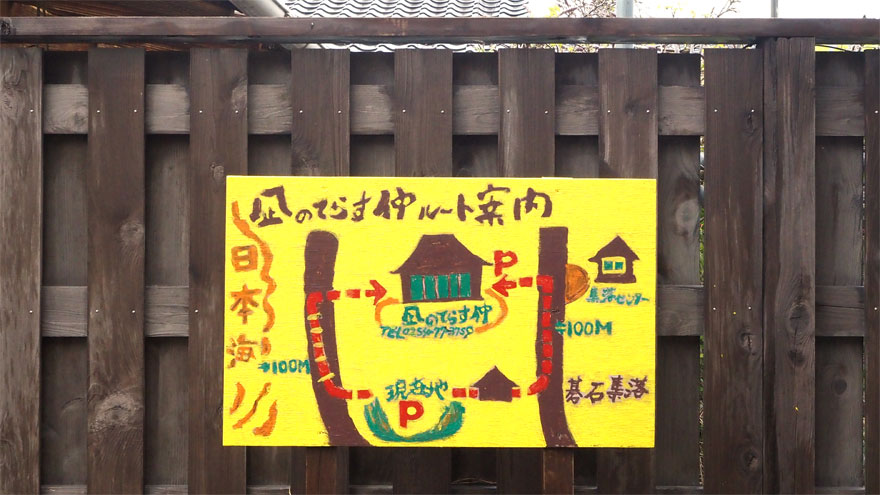 凪のてらす仲ルート案内
日本海
P
集落センター
凪のてらす仲
TEL0256-77-3750
→100M
→100M
現在地
P
碁石集落